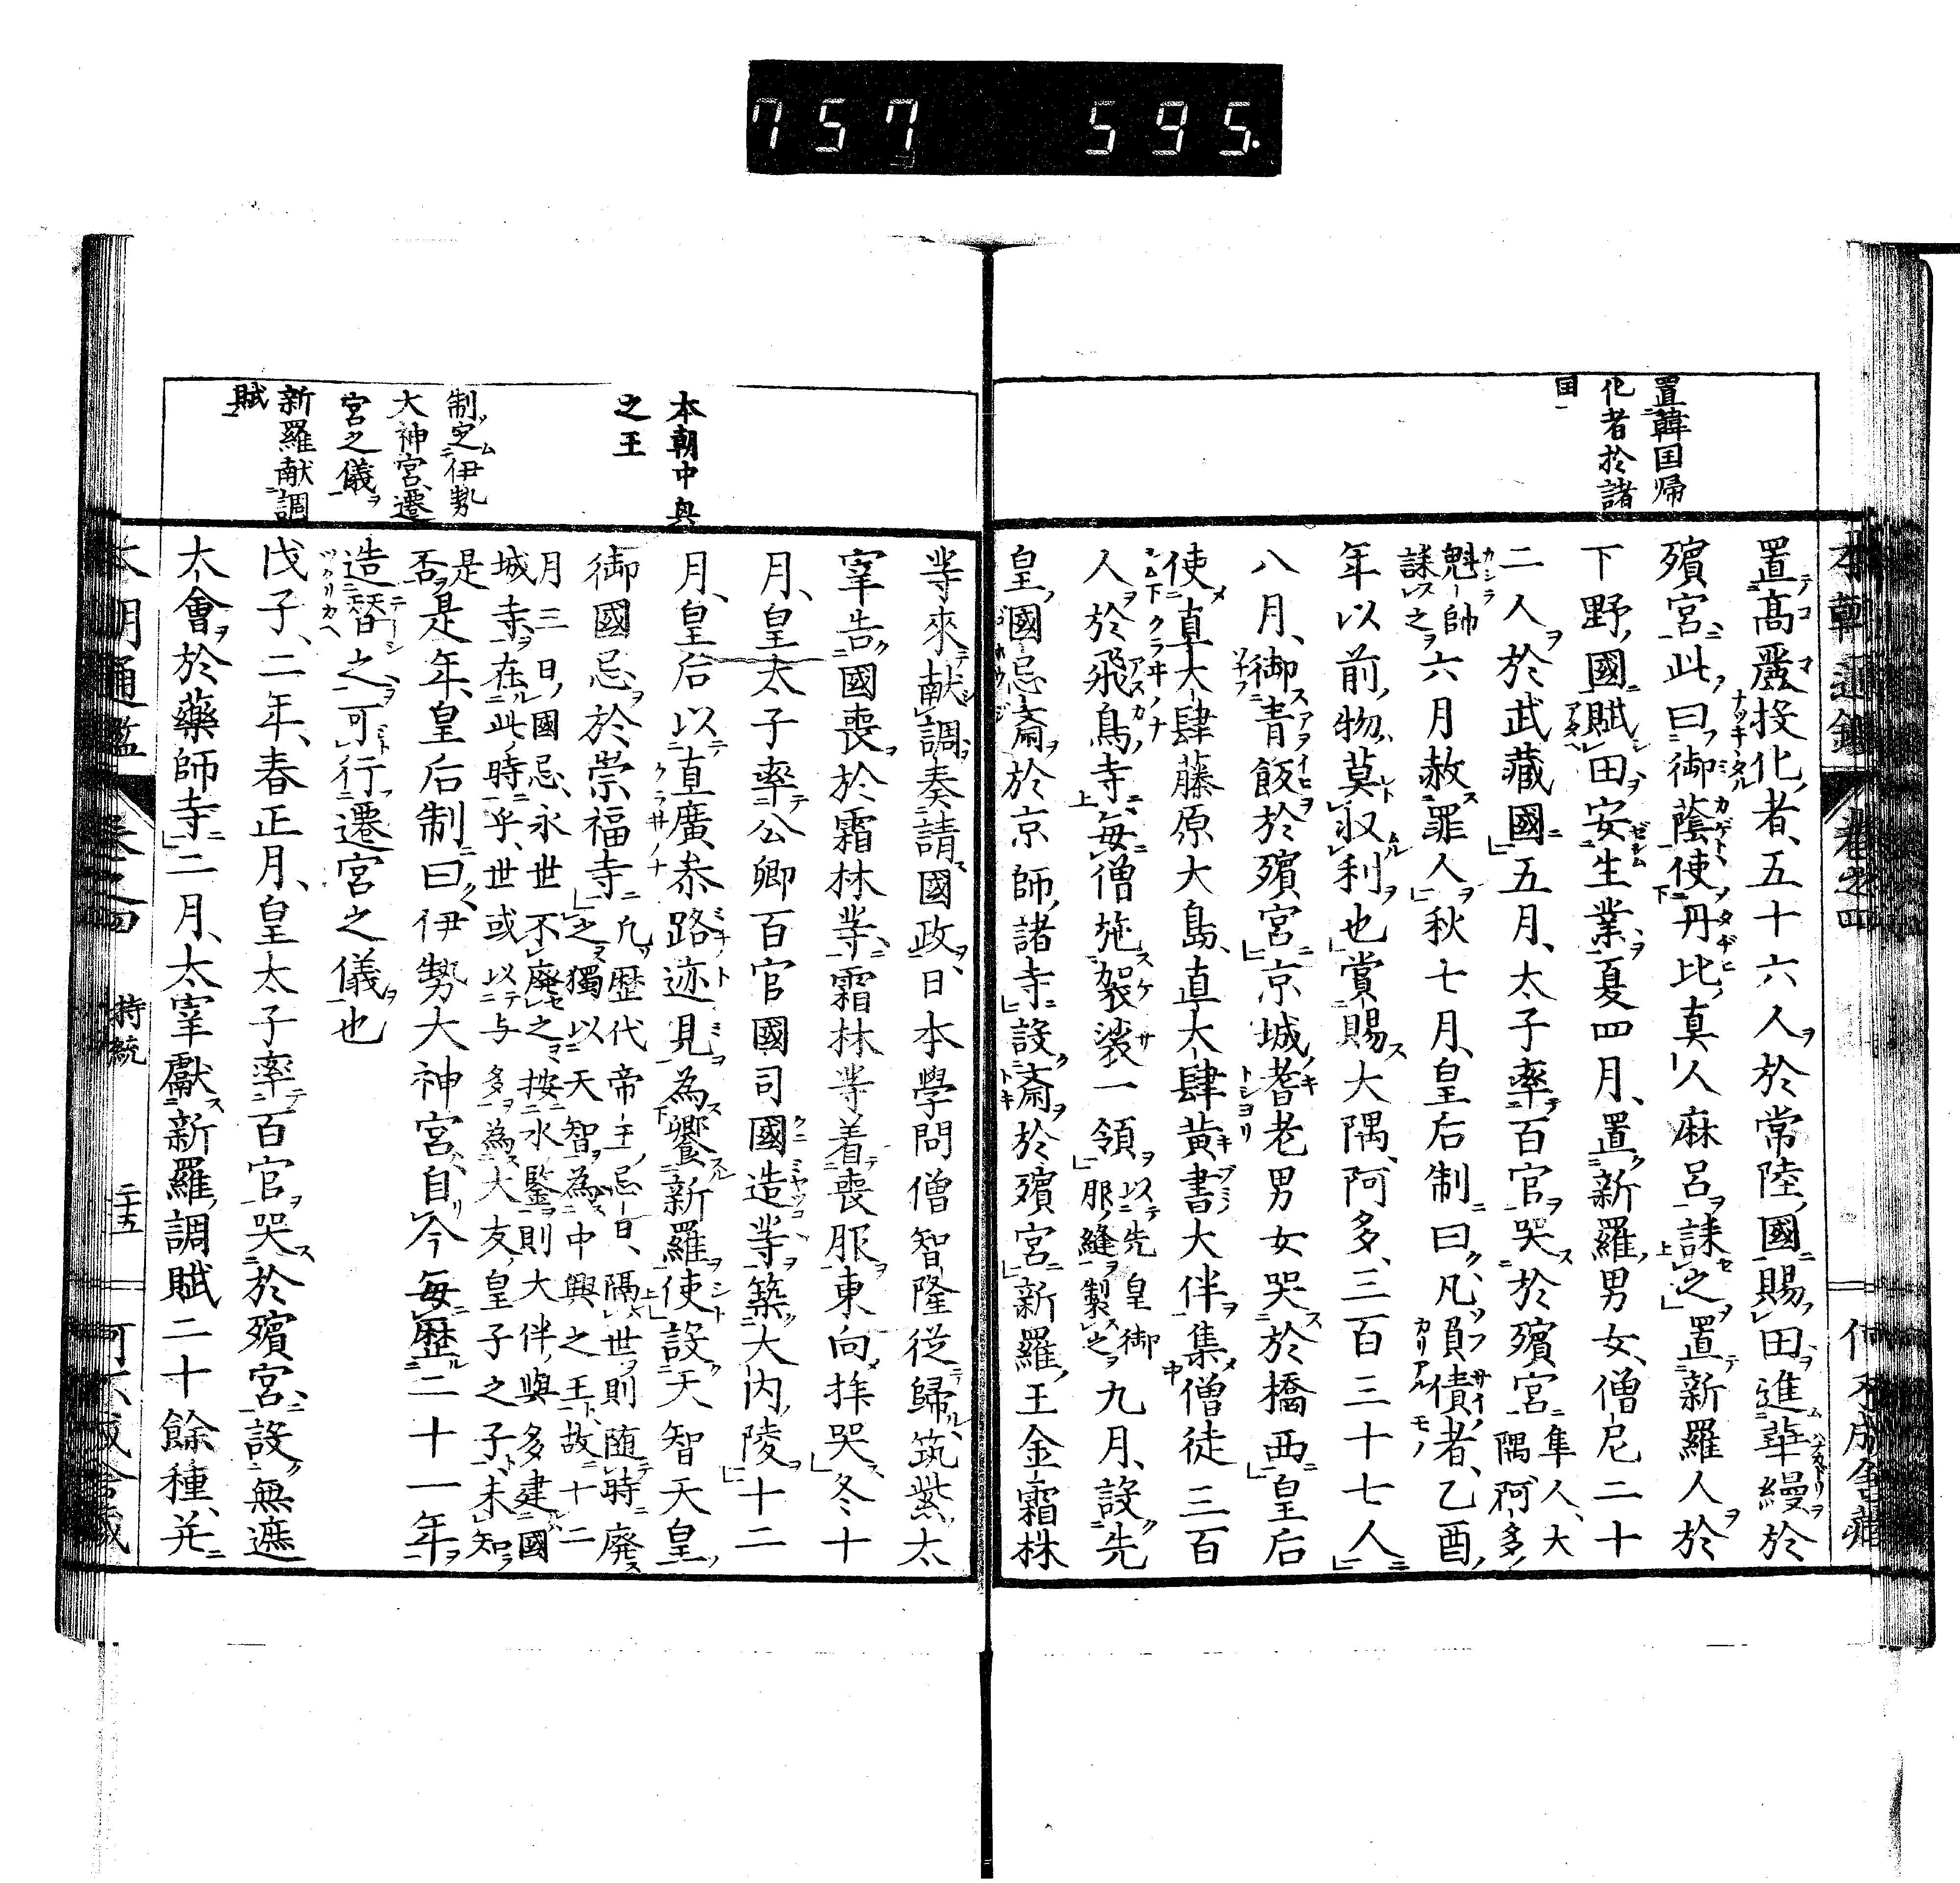 757 595.
置韓国帰
化者於諸
国
置高麗投化者五十六人於常陸國賜田進華縵於
殯宮此曰御蔭使丹比真人麻呂誄之置新羅人於
下野國賦田安生業夏四月置新羅男女僧尼二十
二人於武藏國五月太子率百官哭於殯宮隼人大隅阿多
魁帥誄之六月赦罪人秋七月皇后制曰凡負債者乙酉
年以前物莫収利也賞賜大隅阿多三百三十七人
八月御青飯於殯宮京城耆老男女哭於橋西皇后
使直大肆藤原大島直大肆黄書大伴集僧徒三百
人於飛鳥寺毎僧施袈裟一領以先皇御服縫製之九月設先
皇國忌齋於京師諸寺設齋於殯宮新羅王金霜林
等來献調奏請國政日本學問僧智隆従歸筑紫太
宰告國喪於霜林等霜林等着喪服東向拜哭冬十
月皇太子率公卿百官國司國造等築大内陵十二
月皇后以直廣叅路迹見為饗新羅使設天智天皇
御國忌於崇福寺凡歴代帝王忌日隔世則随時廃之獨以天智為中興之王故十二
月三日國忌永世不廃之按水鑒則大伴與多建國
城寺在此時乎世或以与多為大友皇子之子未知是
否是年皇后制曰伊勢大神宮自今毎歴二十一年
造替之可行遷宮之儀也
戊子二年春正月皇太子率百官哭於殯宮設無遮
太會於藥師寺二月太宰獻新羅調賦二十餘種并
本朝中興
之王
制定伊勢
大神宮遷
宮之儀
新羅献調
賦
本朝通鑑 卷之四 持統 二十五